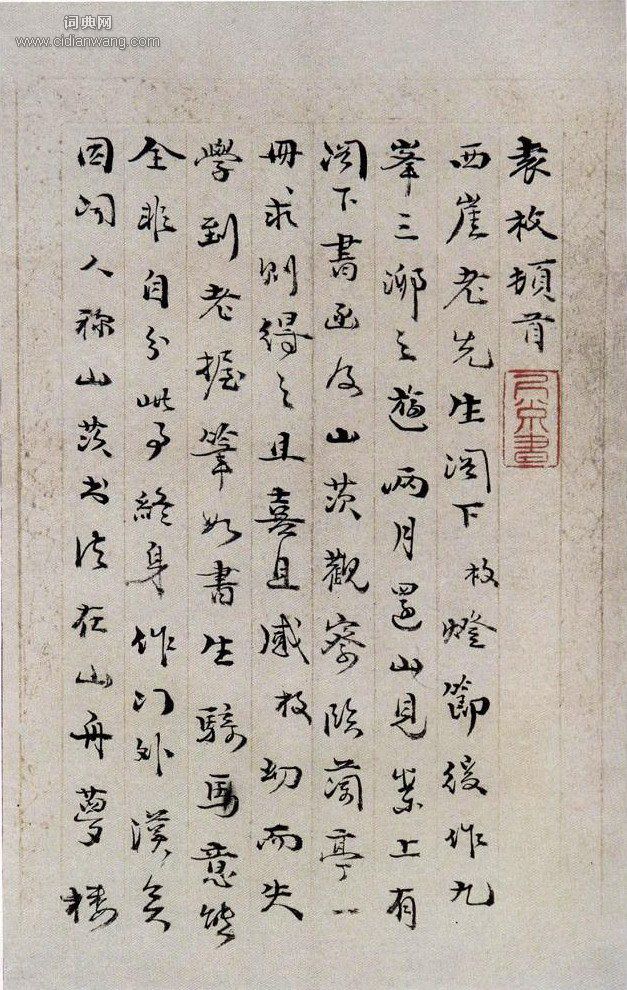 词典网
www.cidianwang.com
袁枚頓首
西崖老先生閣下枚燈節後作九
峯三泖之遊兩月還山見案上有
閣下書函及山茨觀察臨蘭亭一
冊求則得之且喜且感枚幼而失
學到老握筆如書生騎馬意態
全非自分此事終身作门外漢矣
因聞人稱山茨书法在山舟夢樓